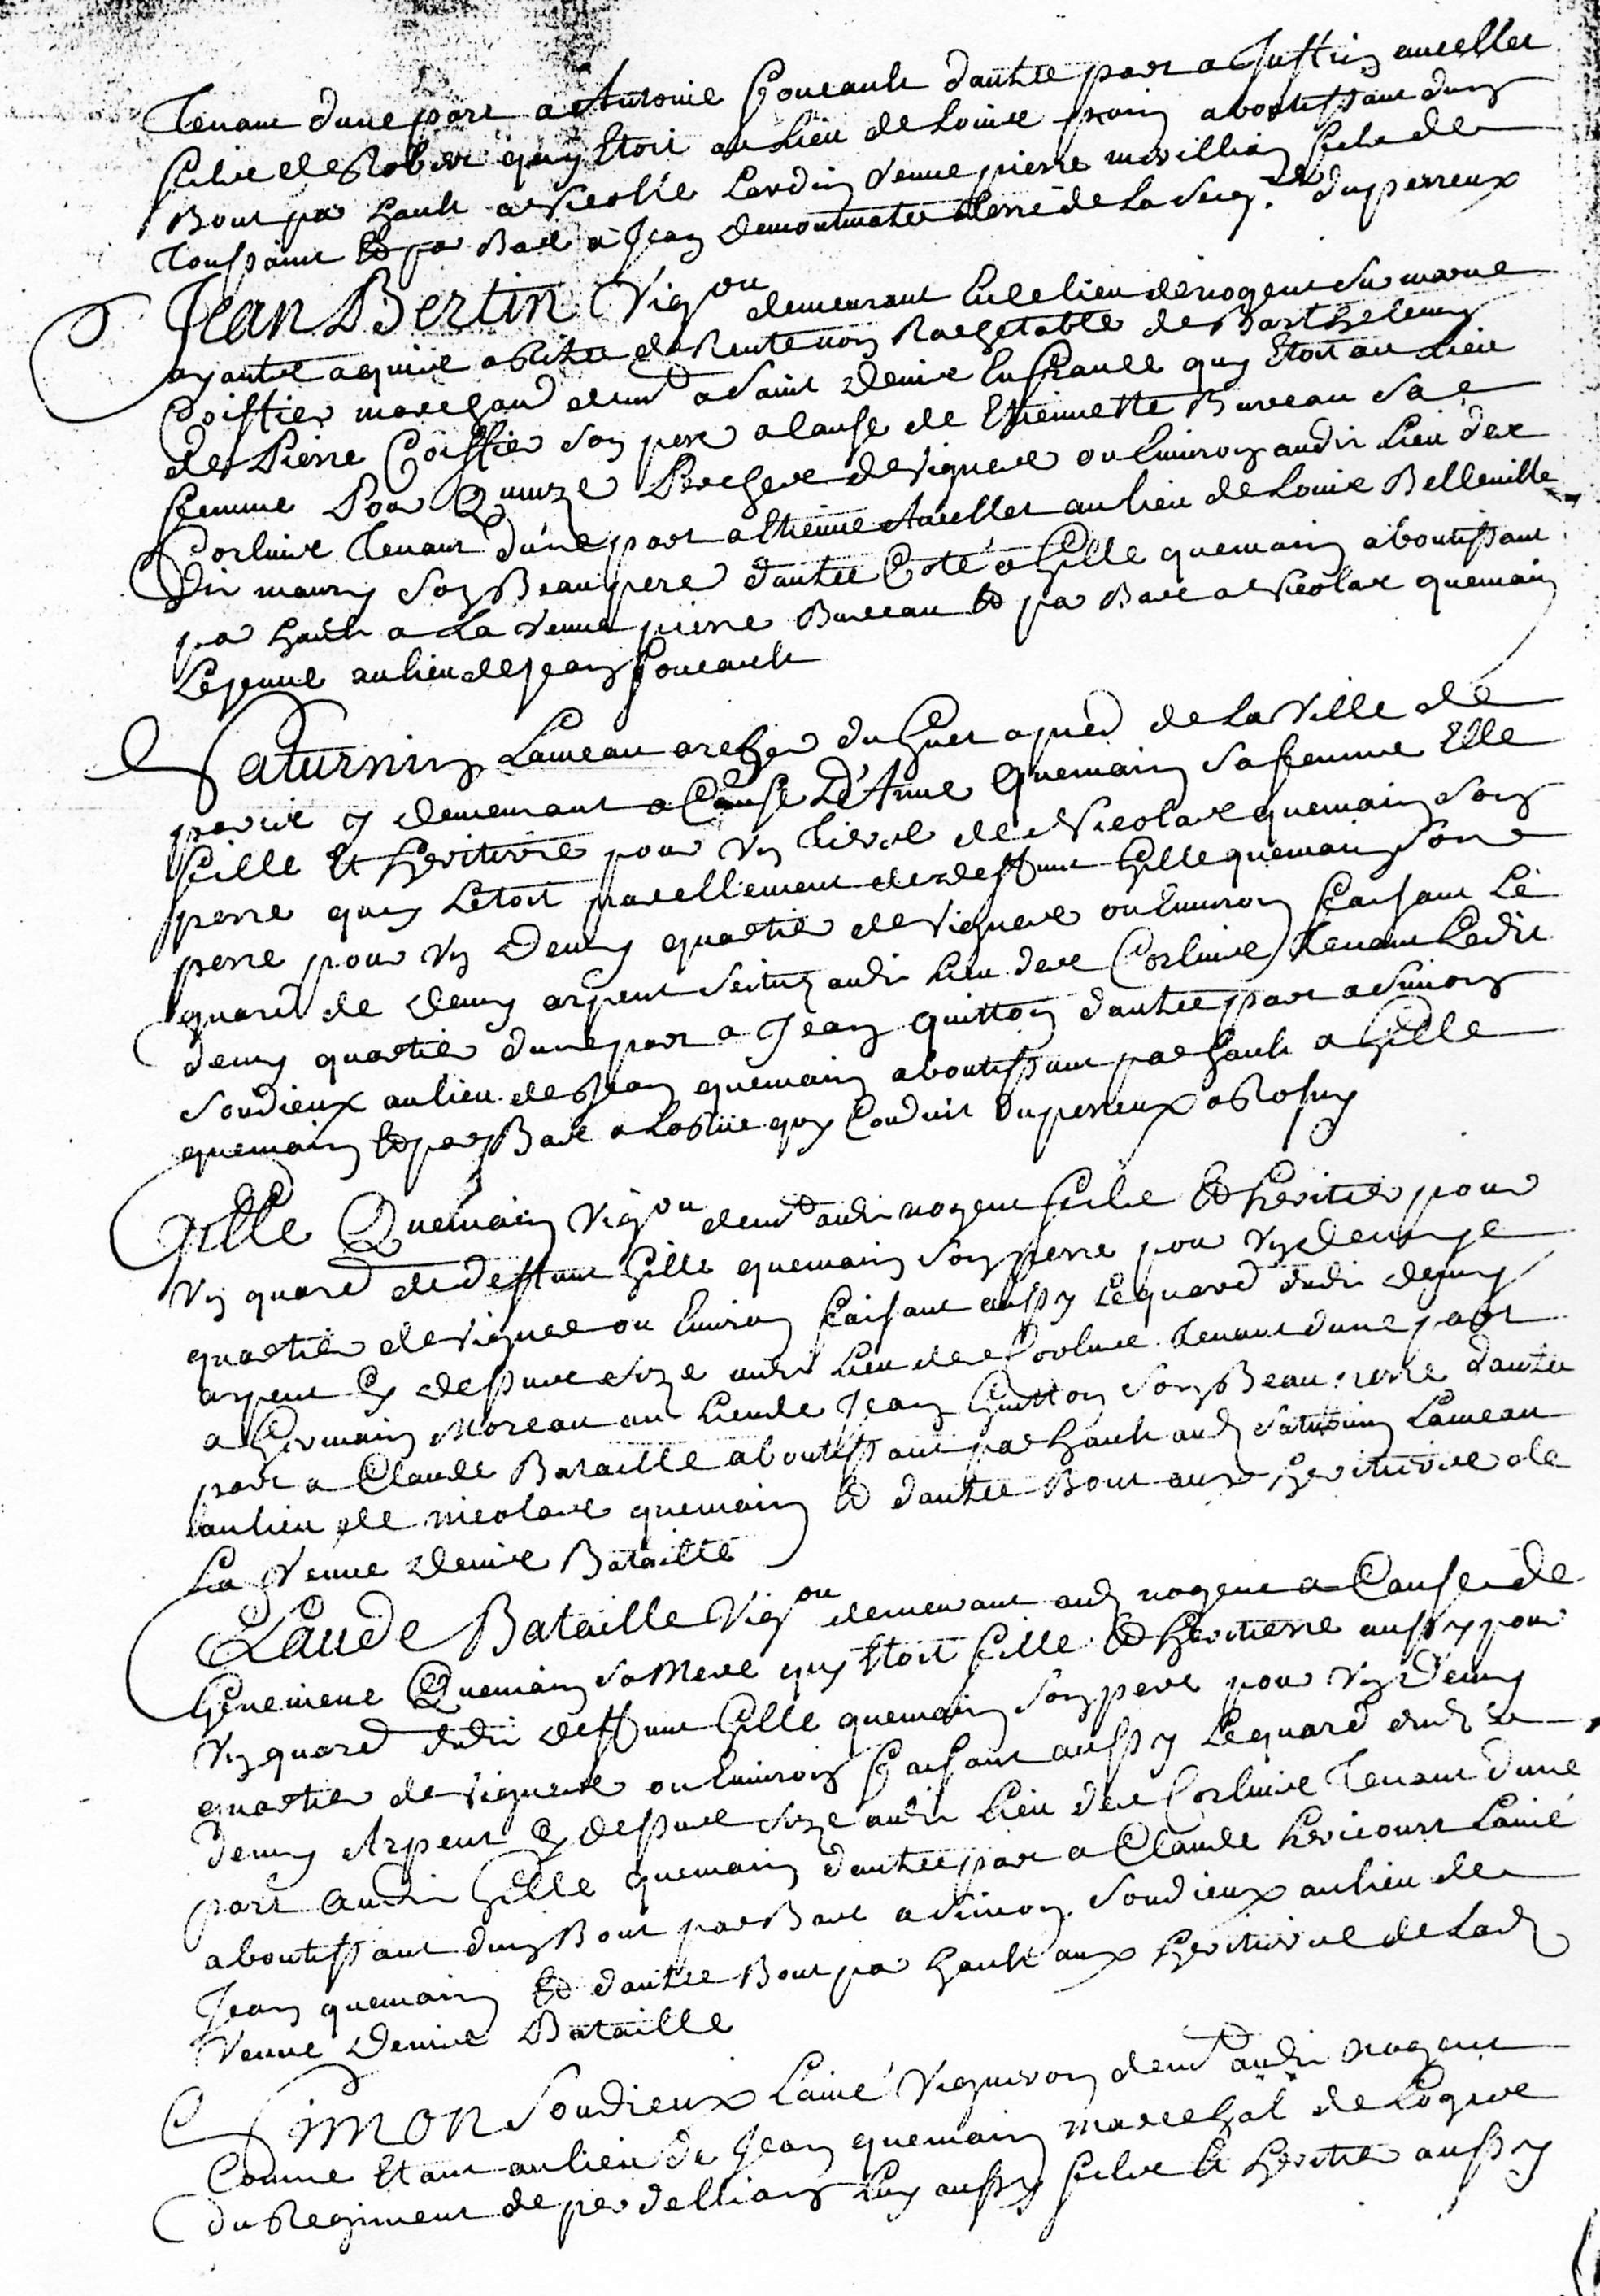 Tenant dune part a Antoine Foucault dautre part a Justin aucellet
filz de Robert quy Etoit au Lieu de Louise aboutissant dung
Bout par hault a Nicolle Lardin veuve pierre filz de
Toussaint Et par Bas a Jean demontmatre terre de La Seig.rie duperreux
Jean Bertin Vigron demeurant En ce lieu de nogent sur marne
ayant acquis a titre de Rente non Rachetable de Barthelemy
Coiffier marchand demt a Saint denis En france quy Etoit au Lieu
de Pierre Coiffier son pere a cause de Etiennette Bureau sa
femme Pour Quinze Perches de vignes ou Environ audit Lieu des
Corluis Tenant dune part a Etienne Aucellet au lieu de Louis Belleville
dit maury son Beau pere dautre Coté a Gille quemain aboutissant
par hault a La veuve pierre Bureau Et par Bas a Nicolas quemain
Lejeune au lieu de Jean foucault
Saturnin Lameau archer du Guet a pied de La Ville de
paris y demeurant a Cause D'Anne Quemain sa femme Elle
fille Et heritiere pour un tiers de Nicolas quemain son
perre quy Letoit pareillement de deffunt Gille quemain son
perre pour un demy quartier de vignes ou Environ faisant Le
quard de demy arpent seitué audit Lieu des Corluis Tenant Ledit
demy quartier dune part a Jean Guitton dautre part a Simon
Soudieux au lieu de Jean quemain aboutissant par hault a Gille
quemain Et par Bas a La Rue quy Conduit duperreux a Rosny
Gille Quemain Vigron demt audit nogent filz Et heritier pour
un quard de deffunt Gille quemain son perre pour un demy
quartier de vignes ou Environ faisant aussy Le quard dudit demy
arpent Cy dessus size audit Lieu des Corluis Tenant dune part
a Germain Moreau au Lieu de Jean Guitton son Beau perre dautre
part a Claude Bataille aboutissant par hault aud Saturnin Lameau
au lieu de nicolas quemain Et dautre Bout aux heritiers de
La veuve denis Bataille
Claude Bataille Vigron demeurant aud nogent a Cause de
Genevieve Quemain sa Mere quy Etoit fille Et heritierre aussy pour
un quard dudit deffunt Gille quemain son pere pour un demy
quartier de vignes ou Environ faisant aussy Le quard dud
demy Arpent Cy dessus size audit Lieu des Corluis Tenant dune
part audit Gille quemain dautre part a Claude hericourt Lainé
aboutissant dung Bout par Bas a Simon Soudieux au lieu de
Jean quemain Et dautre Bout par hault aux heritiers de Lad
Veuve denis Bataille
Simon Soudieux Lainé Vigneron demt audit nogent
Comme Etant au lieu de Jean quemain marechal de Logis
du Regiment de Luy aussy filz Et heritier aussy